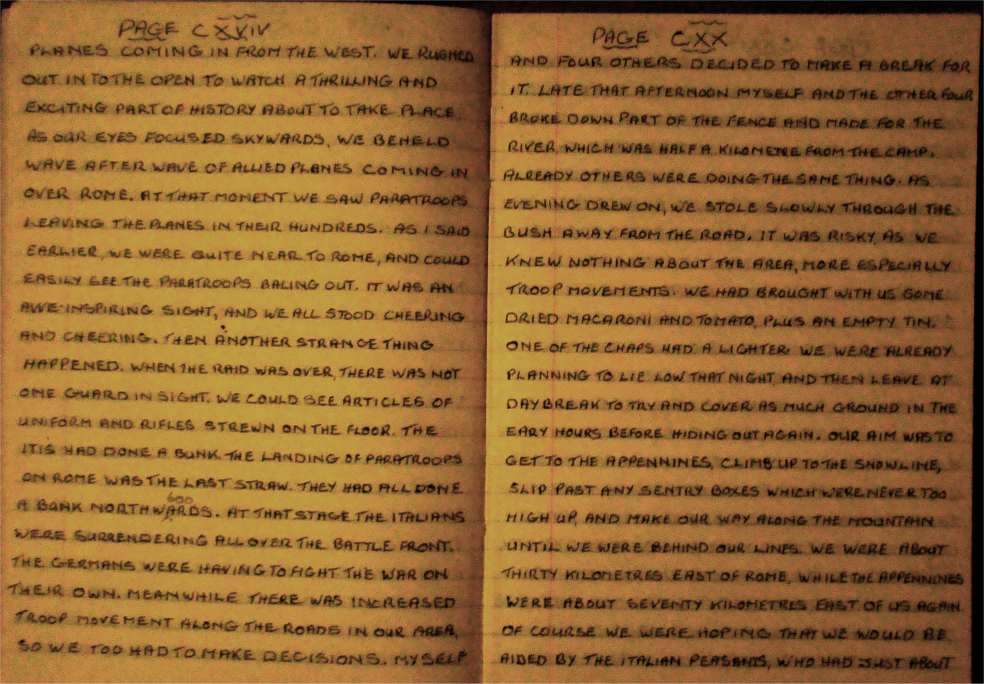 PAGE CXXIV
PLANES COMING IN FROM THE WEST. WE RUSHED
OUT INTO THE OPEN TO WATCH A THRILLING AND
EXCITING PART OF HISTORY ABOUT TO TAKE PLACE.
AS OUR EYES FOCUSED SKYWARDS, WE BEHELD
WAVE AFTER WAVE OF ALLIED PLANES COMING IN
OVER ROME. AT THAT MOMENT WE SAW PARATROOPS
LEAVING THE PLANES IN THEIR HUNDREDS. AS I SAID
EARLIER, WE WERE QUITE NEAR TO ROME, AND COULD
EASILY SEE THE PARATROOPS BALING OUT. IT WAS AN
AWE-INSPIRING SIGHT, AND WE ALL STOOD CHEERING
AND CHEERING. THEN ANOTHER STRANGE THING
HAPPENED. WHEN THE RAID WAS OVER, THERE WAS NOT
ONE GUARD IN SIGHT. WE COULD SEE ARTICLES OF
UNIFORM AND RIFLES STREWN ON THE FLOOR. THE
ITIS HAD DONE A BUNK. THE LANDING OF PARATROOPS
ON ROME WAS THE LAST STRAW. THEY HAD ALL DONE
A BUNK NORTHWARDS. AT THAT STAGE THE ITALIANS
WERE SURRENDERING ALL OVER THE BATTLE FRONT.
THE GERMANS WERE HAVING TO FIGHT THE WAR ON
THEIR OWN. MEANWHILE THERE WAS INCREASED
TROOP MOVEMENT ALONG THE ROADS IN OUR AREA,
SO WE TOO HAD TO MAKE DECISIONS. MYSELF
PAGE CXX
AND FOUR OTHERS DECIDED TO MAKE A BREAK FOR
IT. LATE THAT AFTERNOON MYSELF AND THE OTHER FOUR
BROKE DOWN PART OF THE FENCE AND MADE FOR THE
RIVER WHICH WAS HALF A KILOMETRE FROM THE CAMP.
ALREADY OTHERS WERE DOING THE SAME THING. AS
EVENING DREW ON, WE STOLE SLOWLY THROUGH THE
BUSH AWAY FROM THE ROAD. IT WAS RISKY, AS WE
KNEW NOTHING ABOUT THE AREA, MORE ESPECIALLY
TROOP MOVEMENTS. WE HAD BROUGHT WITH US SOME
DRIED MACARONI AND TOMATO, PLUS AN EMPTY TIN.
ONE OF THE CHAPS HAD A LIGHTER. WE WERE ALREADY
PLANNING TO LIE LOW THAT NIGHT, AND THEN LEAVE AT
DAYBREAK TO TRY AND COVER AS MUCH GROUND IN THE
EARY HOURS BEFORE HIDING OUT AGAIN. OUR AIM WAS TO
GET TO THE APPENNINES, CLIMB UP TO THE SNOWLINE,
SLIP PAST ANY SENTRY BOXES WHICH WERE NEVER TOO
HIGH UP, AND MAKE OUR WAY ALONG THE MOUNTAIN
UNTIL WE WERE BEHIND OUR LINES. WE WERE ABOUT
THIRTY KILOMETRES EAST OF ROME, WHILE THE APPENNINES
WERE ABOUT SEVENTY KILOMETRES EAST OF US AGAIN.
OF COURSE WE WERE HOPING THAT WE WOULD BE
AIDED BY THE ITALIAN PEASANTS, WHO HAD JUST ABOUT